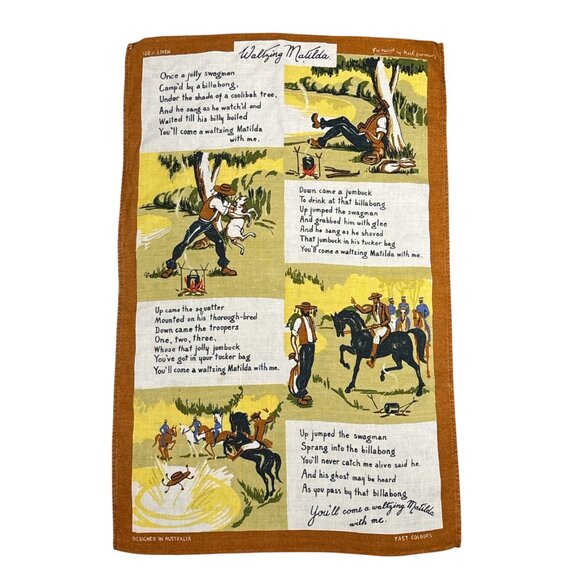 100% LINEN
Waltzing Matilda
Once a jolly swagman
Camp'd by a billabong,
Under the shade of a coolibah tree,
And he sang as he watch'd and
Waited till his billy boiled
You'll come a waltzing Matilda
with me.
Down came a jumbuck
To drink at that billabong
Up jumped the swagman
And grabbed him with glee
And he sang as he shoved
That jumbuck in his tucker bag
You'll come a waltzing Matilda with me.
Up came the squatter
Mounted on his thorough-bred
Down came the troopers
One, two, three.
Whose that jolly jumbuck
You've got in your tucker bag
You'll come a waltzing Matilda with me.
Up jumped the swagman
Sprang into the billabong
You'll never catch me alive said he.
And his ghost may be heard
As you pass by that billabong
You'll come a waltzing Matilda
with me.
DESIGNED IN AUSTRALIA
FAST COLOURS